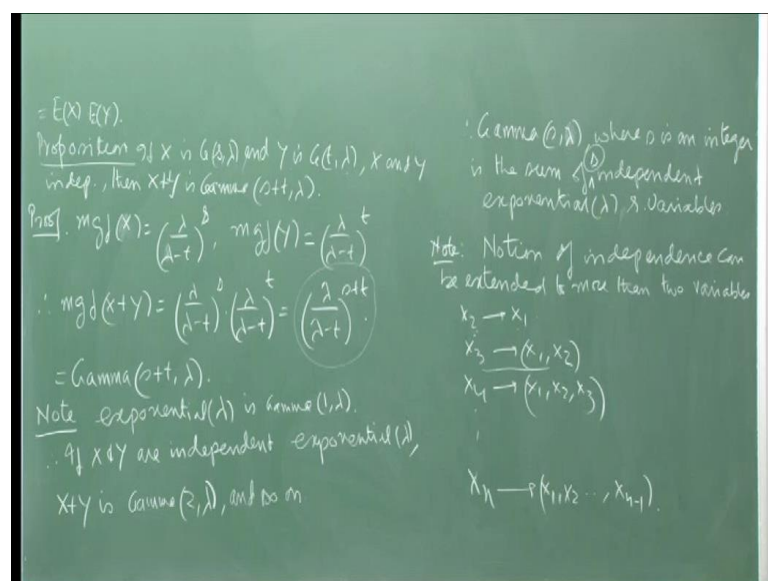 = E(X) E(Y).
Proposition If X is G(s,λ) and Y is G(t,λ), X and Y
indep., then X+Y is Gamma (s+t, λ).
Proof. mgf(X) = (λ/(λ-t))^s, mgf(Y) = (λ/(λ-t))^t
∴ mgf(X+Y) = (λ/(λ-t))^s · (λ/(λ-t))^t = (λ/(λ-t))^(s+t).
= Gamma(s+t, λ).
Note exponential(λ) is Gamma (1,λ).
∴ If X & Y are independent exponential(λ),
X+Y is Gamma(2,λ), and so on
∴ Gamma (s,λ), where s is an integer
is the sum of (s) independent
exponential(λ) r. variables
Note: Notion of independence can
be extended to more than two variables
X₂ → X₁
X₃ → (X₁, X₂)
X₄ → (X₁, X₂, X₃)
⋮
Xₙ → (X₁, X₂ ..., Xₙ₋₁).